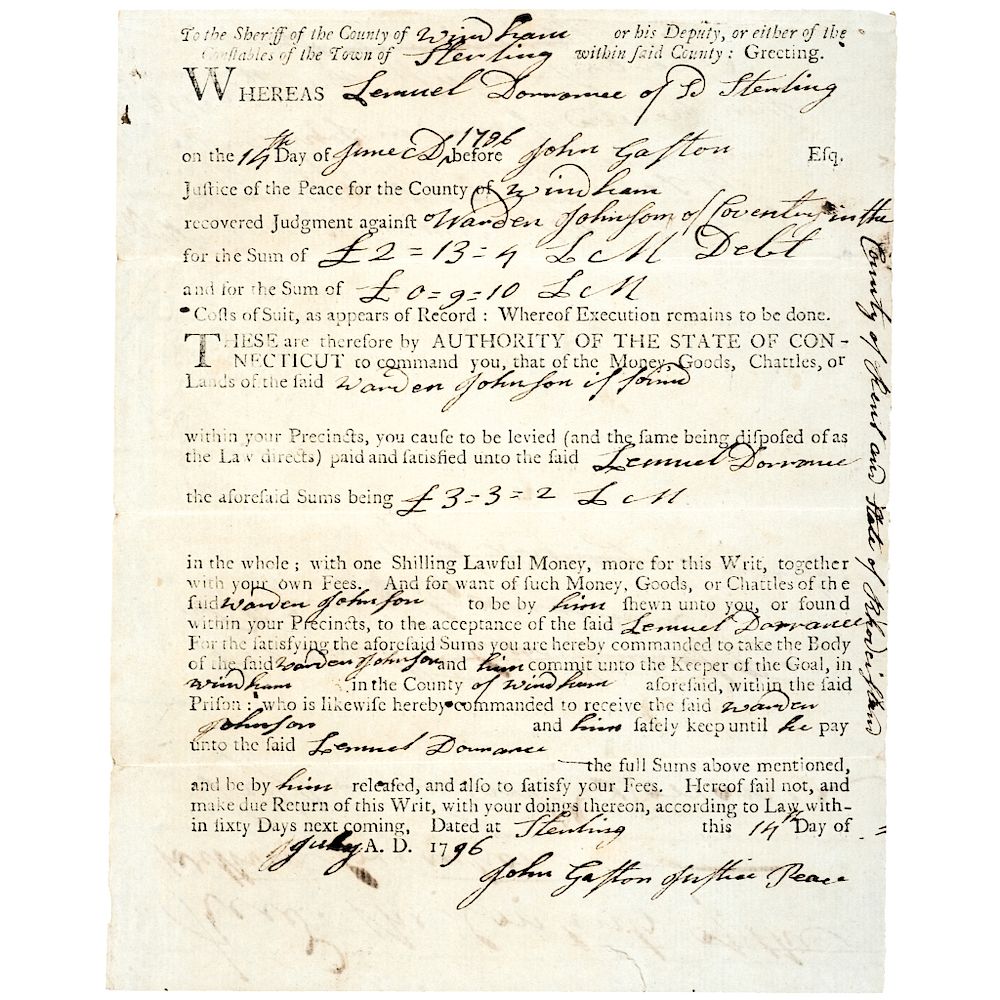 To the Sheriff of the County of Windham or his Deputy, or either of the
Constables of the Town of Sterling within said County: Greeting.
WHEREAS Lemuel Dorrance of Sd Sterling
on the 14th Day of June AD, 1796 before John Gaston Esq.
Justice of the Peace for the County of Windham
recovered Judgment against Warden Johnson of Coventry in the
County of Kent and State of Rhodeisland
for the Sum of £2=13=4 L M Debt
and for the Sum of £0=9=10 L M
Costs of Suit, as appears of Record: Whereof Execution remains to be done.
THESE are therefore by AUTHORITY OF THE STATE OF CON-
NECTICUT to command you, that of the Money, Goods, Chattles, or
Lands of the said Warden Johnson if found
within your Precincts, you cause to be levied (and the same being disposed of as
the Law directs) paid and satisfied unto the said Lemuel Dorrance
the aforesaid Sums being £3=3=2 L M
in the whole; with one Shilling Lawful Money, more for this Writ, together
with your own Fees. And for want of such Money, Goods, or Chattles of the
said Warden Johnson to be by him shewn unto you, or found
within your Precincts, to the acceptance of the said Lemuel Dorrance
For the satisfying the aforesaid Sums you are hereby commanded to take the Body
of the said Warden Johnson and him commit unto the Keeper of the Goal, in
Windham in the County of Windham aforesaid, within the said
Prison: who is likewise hereby commanded to receive the said Warden
Johnson and him safely keep until he pay
unto the said Lemuel Dorrance
the full Sums above mentioned,
and be by him released, and also to satisfy your Fees. Hereof fail not, and
make due Return of this Writ, with your doings thereon, according to Law with-
in sixty Days next coming, Dated at Sterling this 14th Day of
July A. D. 1796
John Gaston Justice Peace